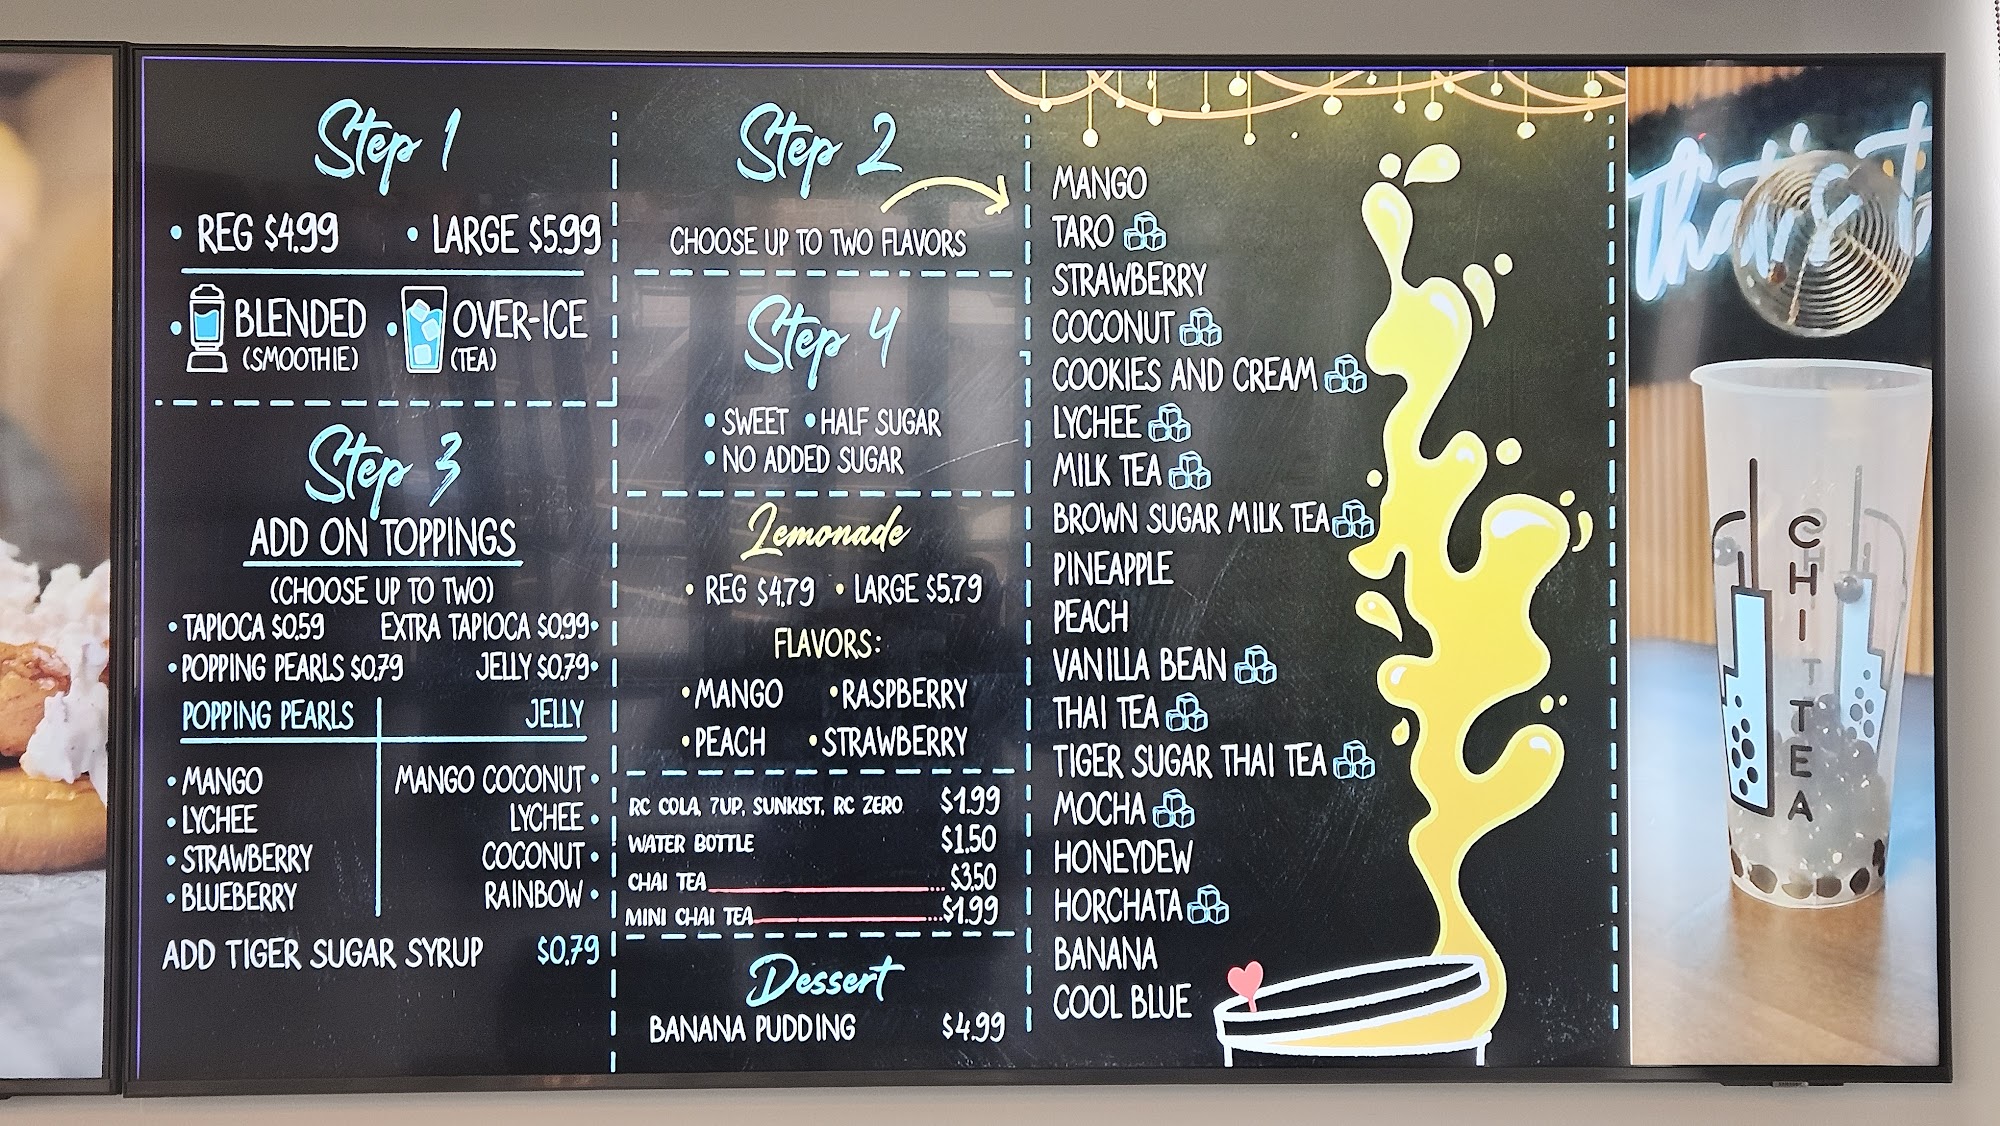 Step 1
• REG $4.99 • LARGE $5.99
• BLENDED • OVER-ICE
(SMOOTHIE) (TEA)
Step 3
ADD ON TOPPINGS
(CHOOSE UP TO TWO)
• TAPIOCA $0.59 EXTRA TAPIOCA $0.99 •
• POPPING PEARLS $0.79 JELLY $0.79 •
POPPING PEARLS JELLY
• MANGO MANGO COCONUT •
• LYCHEE LYCHEE •
• STRAWBERRY COCONUT •
• BLUEBERRY RAINBOW •
ADD TIGER SUGAR SYRUP $0.79
Step 2
CHOOSE UP TO TWO FLAVORS
Step 4
• SWEET • HALF SUGAR
• NO ADDED SUGAR
Lemonade
• REG $4.79 • LARGE $5.79
FLAVORS:
• MANGO • RASPBERRY
• PEACH • STRAWBERRY
RC COLA, 7UP, SUNKIST, RC ZERO $1.99
WATER BOTTLE $1.50
CHAI TEA $3.50
MINI CHAI TEA $1.99
Dessert
BANANA PUDDING $4.99
MANGO
TARO
STRAWBERRY
COCONUT
COOKIES AND CREAM
LYCHEE
MILK TEA
BROWN SUGAR MILK TEA
PINEAPPLE
PEACH
VANILLA BEAN
THAI TEA
TIGER SUGAR THAI TEA
MOCHA
HONEYDEW
HORCHATA
BANANA
COOL BLUE
that's
CHITTEA